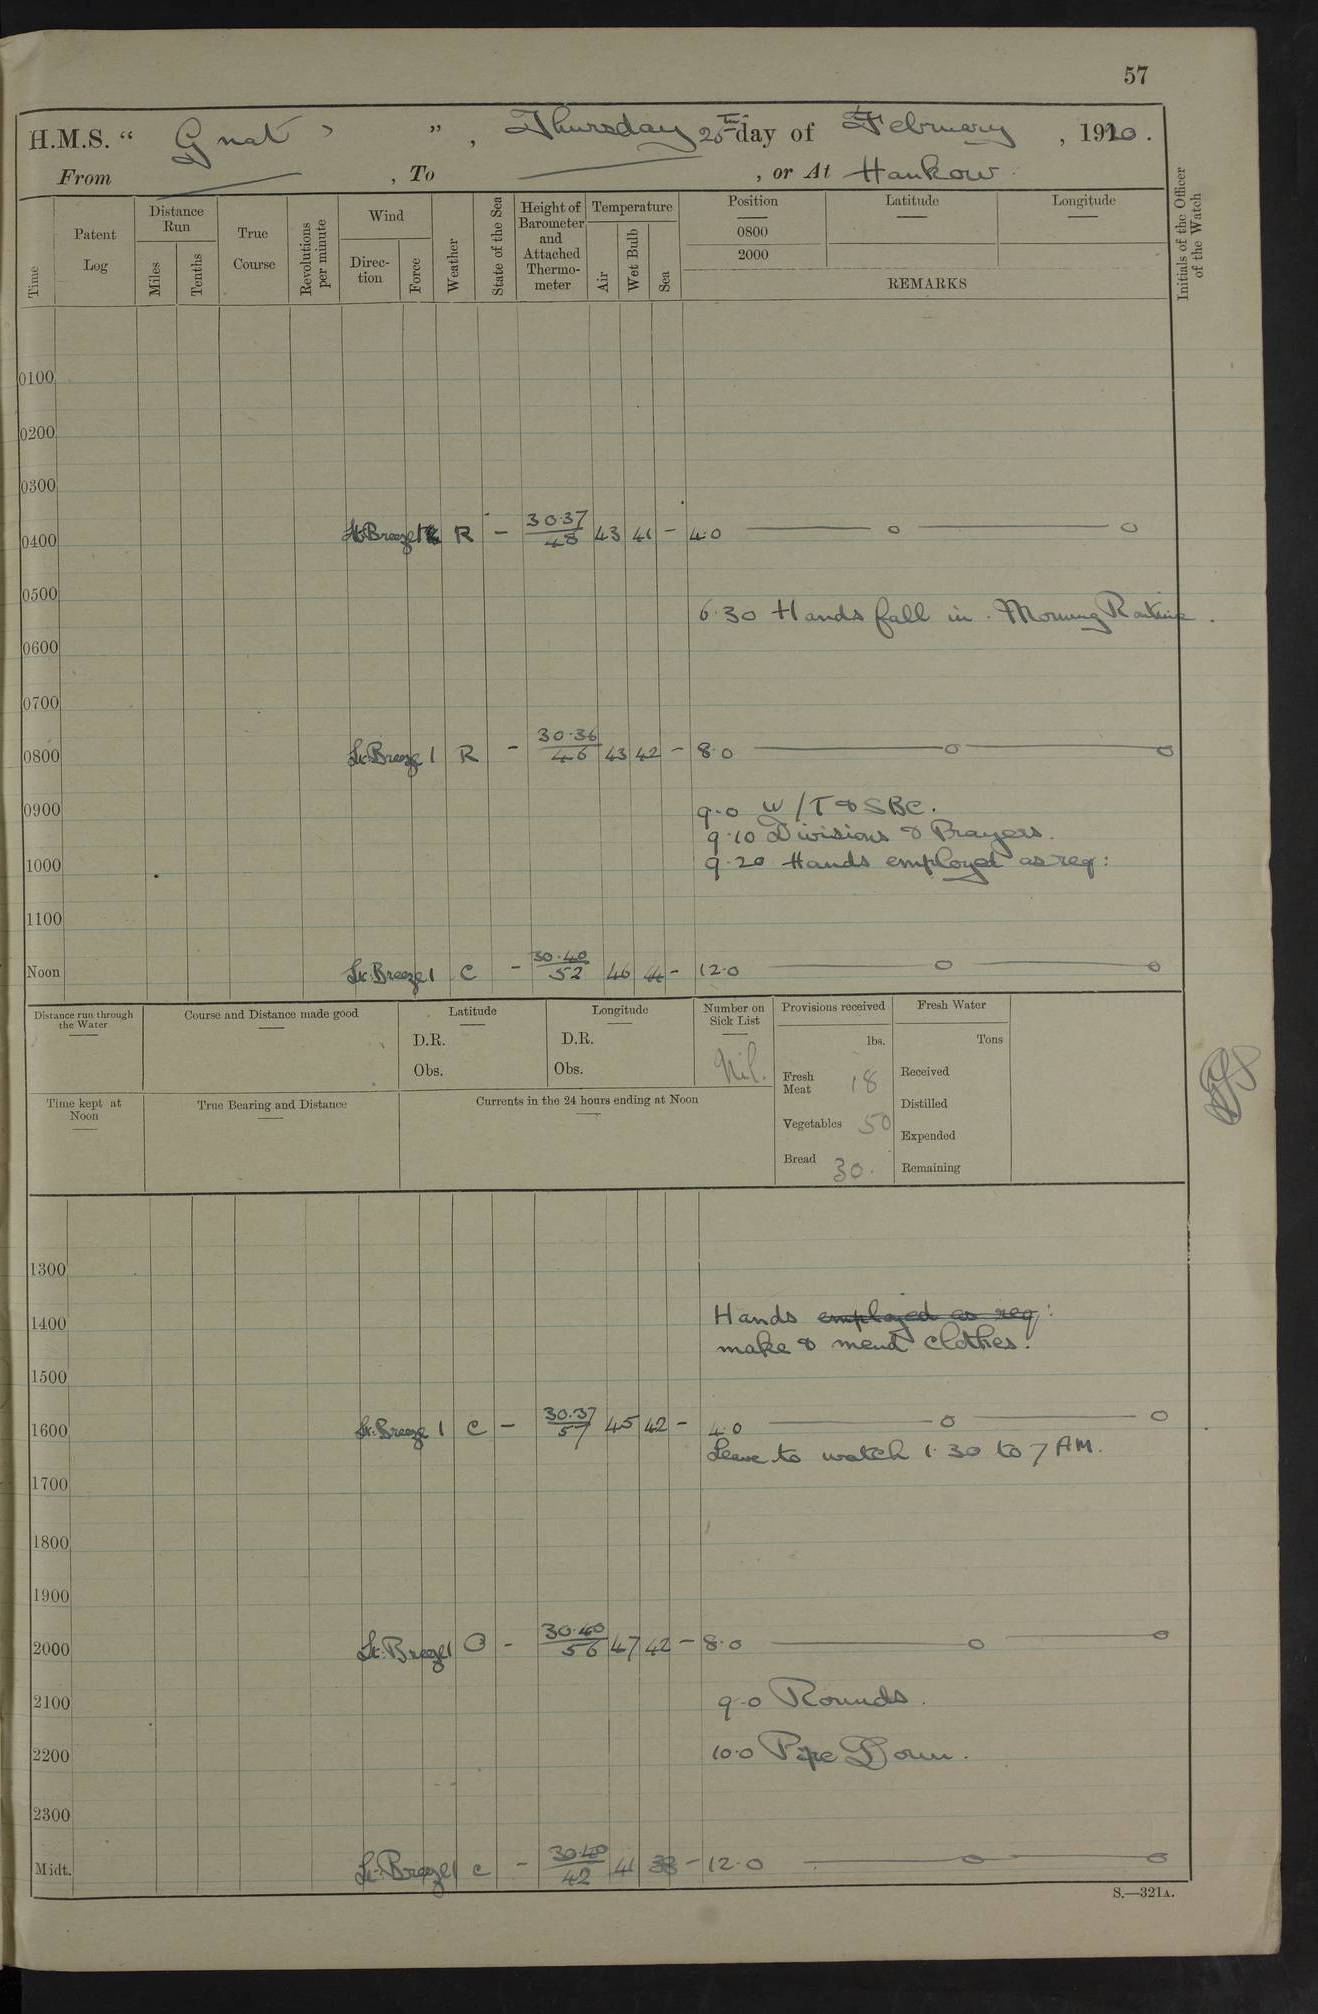 57
H.M.S. “ Gnat ”, Thursday 26th day of February, 1920.
From — , To — , or At Hankow
Time
Patent Log
Distance Run
Miles
Tenths
True Course
Revolutions per minute
Wind
Direction
Force
Weather
State of the Sea
Height of Barometer and Attached Thermometer
Temperature
Air
Wet Bulb
Sea
Position
0800
2000
Latitude
Longitude
REMARKS
Initials of the Officer of the Watch
0100
0200
0300
0400 Lt. Breeze 1 R - 30.37/48 43 41 - 4.0 — o — o
0500
6.30 Hands fall in. Morning Routine.
0600
0700
0800 Lt. Breeze 1 R - 30.36/46 43 42 - 8.0 — o — o
0900 9.0 W/T & SBC.
9.10 Divisions & Prayers.
1000 9.20 Hands employed as req:
1100
Noon Lt. Breeze 1 C - 30.40/52 46 44 - 12.0 — o — o
Distance run through the Water
Course and Distance made good
Latitude
D.R.
Obs.
Longitude
D.R.
Obs.
Number on Sick List
Nil.
Provisions received
lbs.
Fresh Meat 18
Vegetables 50
Bread 30.
Fresh Water
Tons
Received
Distilled
Expended
Remaining
Time kept at Noon
True Bearing and Distance
Currents in the 24 hours ending at Noon
1300
1400 Hands employed as req:
make & mend clothes.
1500
1600 Lt. Breeze 1 C - 30.37/57 45 42 - 4.0 — o — o
Leave to watch 1.30 to 7 AM.
1700
1800
1900
2000 Lt. Breeze 1 O - 30.40/56 47 42 - 8.0 — o — o
2100 9.0 Rounds.
2200 10.0 Pipe Down.
2300
Midt. Lt. Breeze 1 c - 30.40/42 41 38 - 12.0 — o — o
S.—321A.